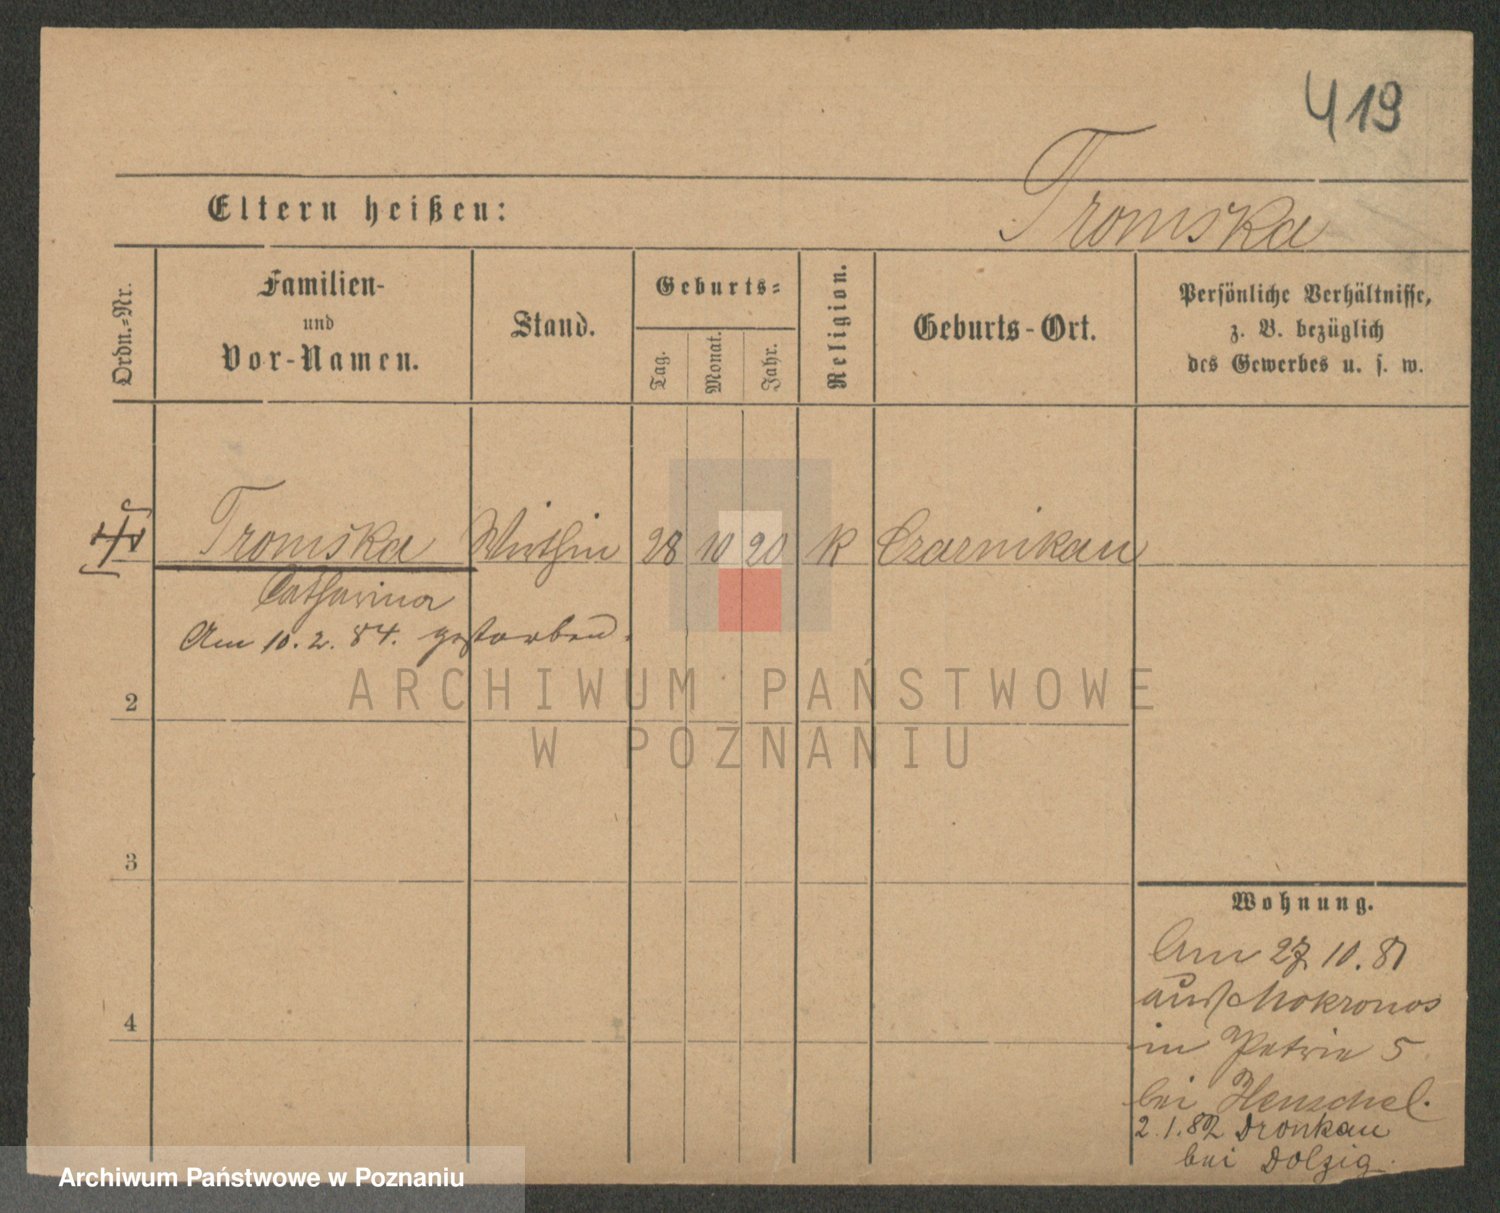 419
Tromska
Eltern heißen:
Ordn.-Nr.
Familien-
und
Vor-Namen.
Stand.
Geburts-
Tag.
Monat.
Jahr.
Religion.
Geburts-Ort.
Persönliche Verhältnisse,
z. B. bezüglich
des Gewerbes u. s. w.
Tromska Wirthin 28 10 20 K Czarnikau
Catharina
Am 10. 2. 84. gestorben.
ARCHIWUM PAŃSTWOWE
W POZNANIU
2
3
4
Wohnung.
Am 27. 10. 81
aus Mokronos
in Petrie 5
bei Henschel.
2.1.82 Dronkau
bei Dolzig.
Archiwum Państwowe w Poznaniu